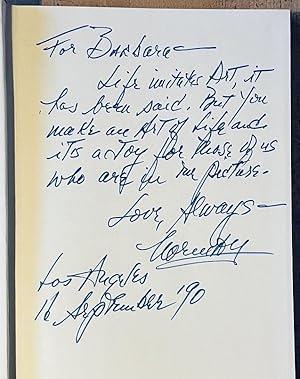 For Barbara—
Life imitates Art, it
has been said. But you
make an Art of Life and
its a joy for those of us
who are in the picture.
Love, Always—
Los Angeles
16 September '90